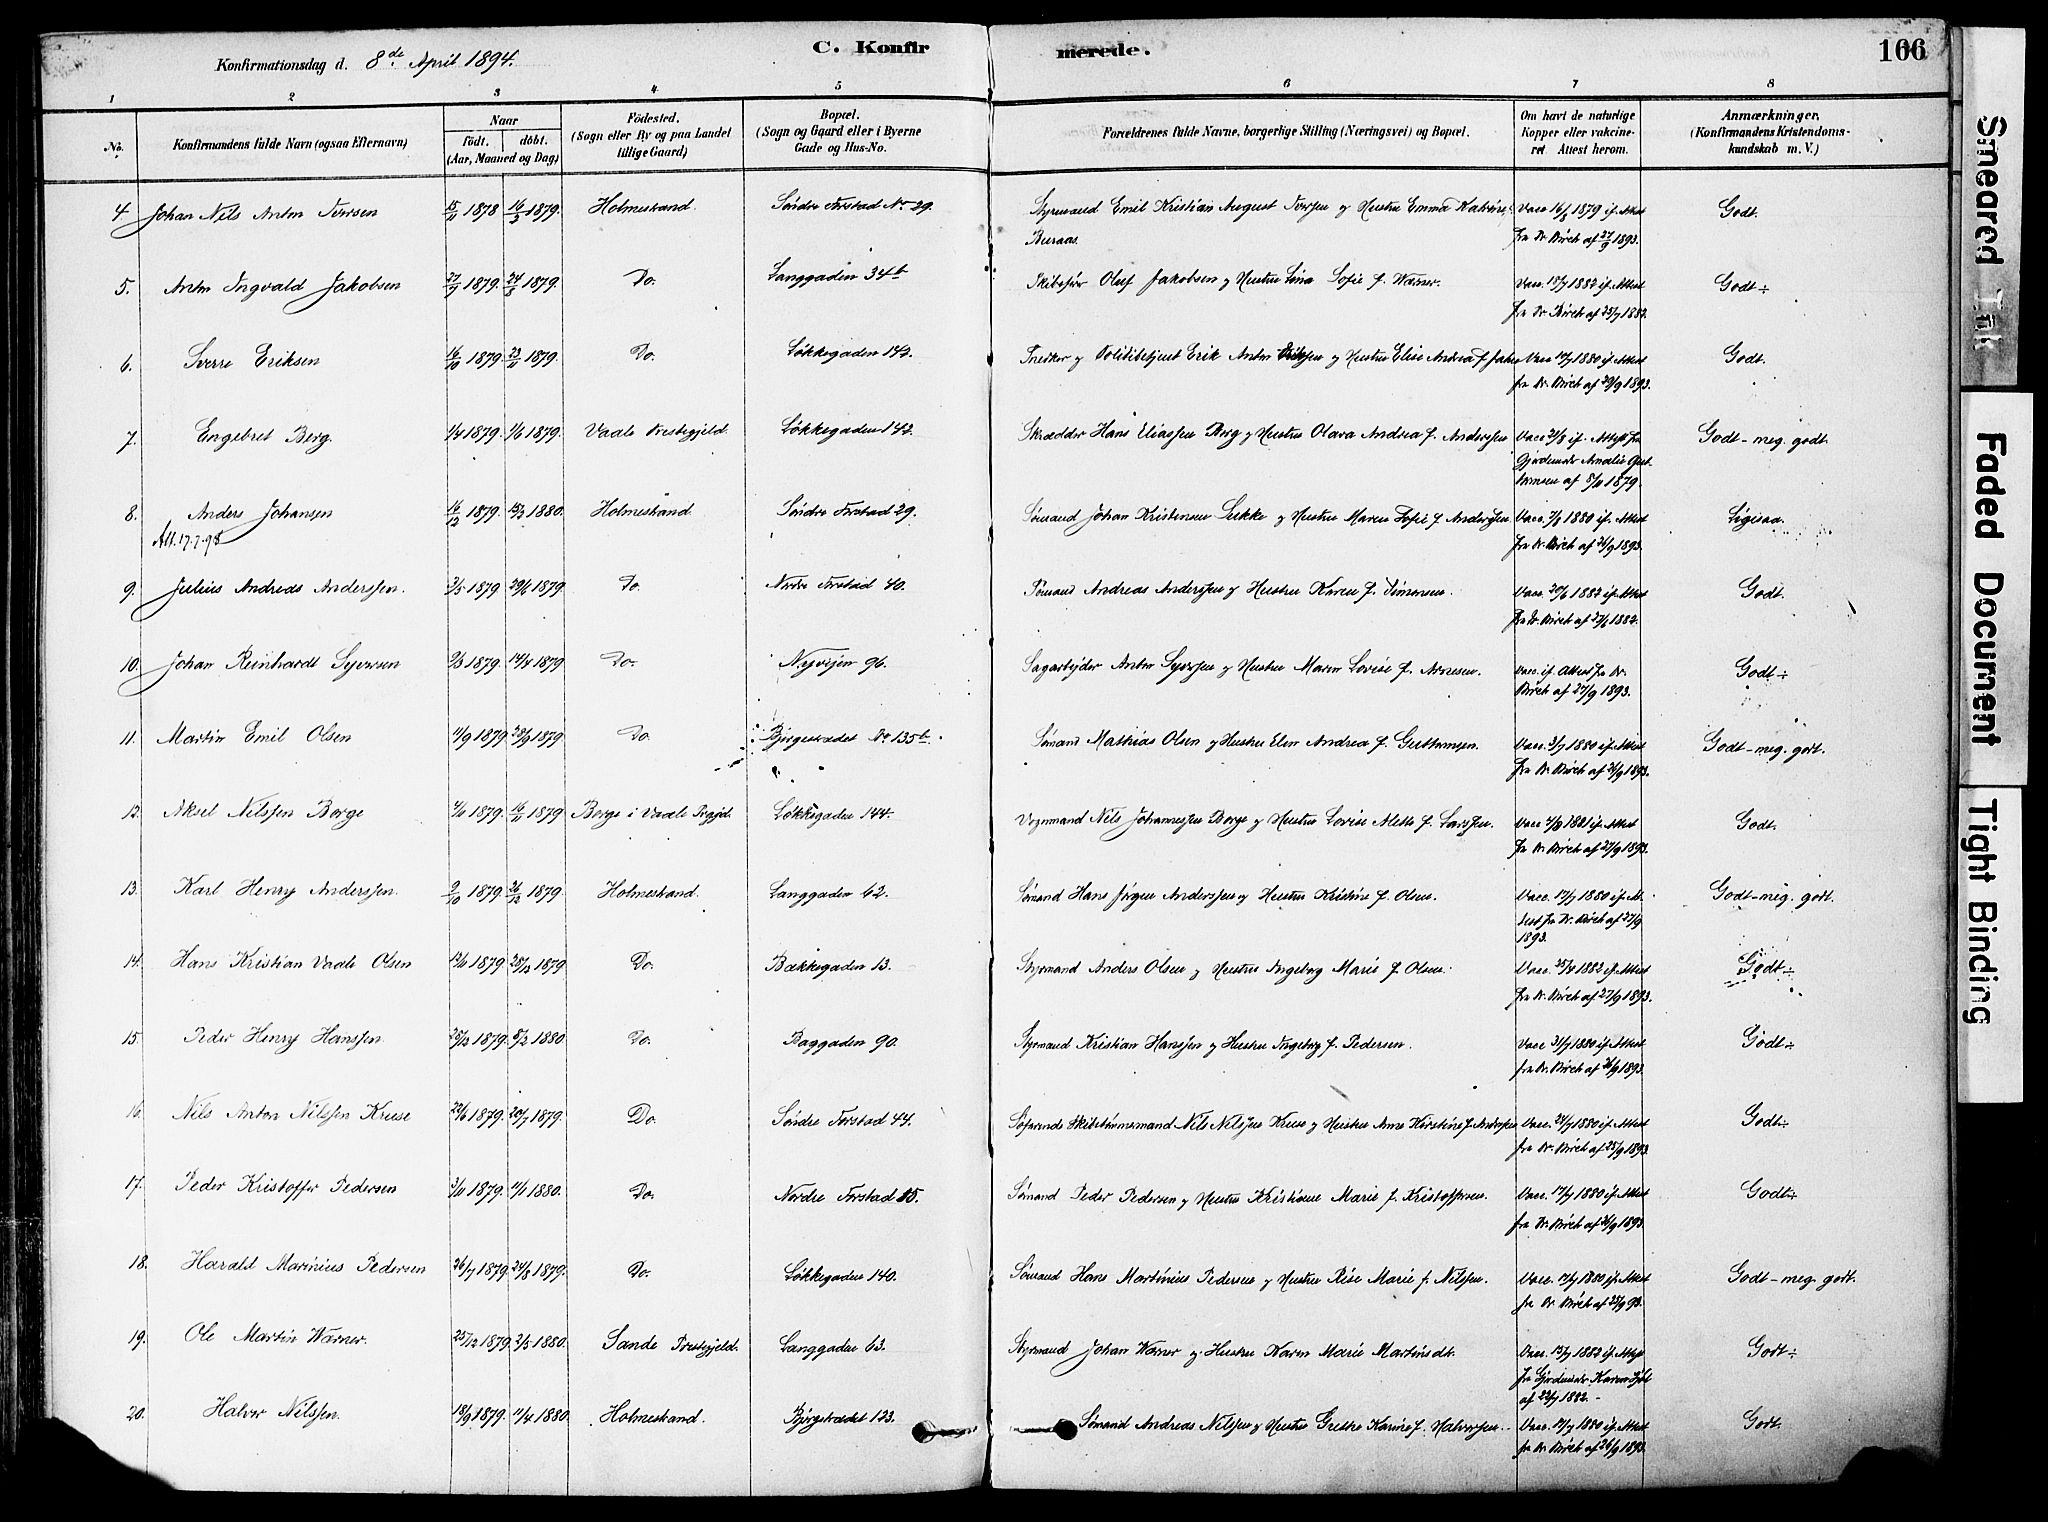 Konfirmationsdag d. 8de April 1894.
C. Konfir
merede.
166
1 2 3 4 5 6 7 8
No.
Konfirmandens fulde Navn (ogsaa Efternavn)
Naar
födt. döbt.
(Aar, Maaned og Dag)
Födested.
(Sogn eller By og paa Landet
tillige Gaard)
Bopæl.
(Sogn og Gaard eller i Byerne
Gade og Hus-No.
Forældrenes fulde Navne, borgerlige Stilling (Næringsvei) og Bopæl.
Om havt de naturlige
Kopper eller vakcine-
ret Attest herom.
Anmærkninger,
(Konfirmandens Kristendoms-
kundskab m. V.)
4 Johan Nils Anton Iversen 15/11 1878 16/3 1879. Holmestrand. Søndre Torstad No 29. Styrmand Emil Kristian August Iversen og Hustru Emma Katrine Vacc 16/8 1879 if. Attest Godt.
Buraas. fra Dr. Birch af 27/9 1893.
5. Anton Ingvald Jakobsen 1879. 24/8 1879. Do. Langgaden 34b Skibsfør Olaf Jakobsen og Hustru Lina Sofie f. Wærner. Vacc. 18/7 1882 if. Attest Godt ÷
fra Dr. Birch af 25/7 1882.
6. Sverre Eriksen 16/10 1879. 23/11 1879. Do. Løkkegaden 142. Snedker og Politibetjent Erik Anton Eriksen og Hustru Elise Andrea f. Vacc 1880 if. Attest Godt.
fra Dr. Birch af 29/9 1893.
7. Engebret Berg. 1/4 1879. 1/6 1879. Vaale Prestegjeld. Løkkegaden 142. Skrædder Hans Eliassen Berg og Hustru Olava Andrea f. Anderssen Vacc 21/8 if. Attest fra Godt - meg. godt.
Gjordemoder Amalie
af 5/11 1879.
8. Anders Johansen 16/12 1879. 1880. Holmestrand Søndre Torstad 29. Sømand Johan Kristensen Lukke og Hustru Maren Sofie f. Anderssen. Vacc. 1880 if. Attest Ligesaa.
Att. 17.7.98 fra Dr. Birch af 26/9 1893.
9. Julius Andreas Anderssen. 3/5 1879. 29/6 1879. Do. Nordre Torstad 40. Sømand Andreas Anderssen og Hustru Karen f. Simonsen. Vacc. 20/6 1882 if. Attest Godt.
fra Dr. Birch af 27/6 1882.
10. Johan Reinhardt Syversen 1879. 14/4 1879. Do. Nyvejen 96. Sagarbejder Anton Syversen og Hustru Maren Lovise f. Arnesen. Vacc. if. Attest fra Dr. Godt ÷
Birch af 27/9 1893.
11. Martin Emil Olsen 4/9 1879 28/9 1879 Do Bjørgestrædet No 135b. Sømand Mathias Olsen og Hustru Elen Andrea f. Guttormsen. Vacc. 3/7 1880 if. Attest Godt - meg. godt.
fra Dr. Birch af 26/9 1893.
12. Aksel Nilssen Borge 1879 16/11 1879 Borge i Vaale Prgjd. Løkkegaden 144. Vognmand Nils Johannessen Borge og Hustru Lovise Alette f. Larssen. Vacc 1881 if. Attest Godt.
fra Dr. Birch af 27/9 1893.
13. Karl Henry Anderssen. 9/10 1879 26/12 1879. Holmestrand. Langgaden 62. Sømand Hans Jørgen Anderssen og Hustru Kristine f. Olsen. Vacc. 17/7 1880 if. At- Godt - meg. godt.
test fra Dr. Birch af 27/9
1893.
14. Hans Kristian Vaale Olsen 1879. 28/12 1879 Do. Bækkegaden 13. Styrmand Anders Olsen og Hustru Ingeborg Marie f. Olsen. Vacc. 25/4 1882 if. Attest Godt ÷
fra Dr. Birch af 27/9 1893.
15. Peder Henry Hanssen 1879. 8/2 1880. Do. Baggaden 90. Styrmand Kristian Hanssen og Hustru Ingeborg f. Pedersen. Vacc 31/7 1880 if. Attest Godt ÷
fra Dr. Birch af 26/9 1893.
16. Nils Anton Nilssen Kruse 22/6 1879. 20/7 1879. Do. Søndre Torstad 44. Skibstømmermand Nils Nilssen Kruse og Hustru Anne Kirstine f. Anderssen Vacc. 24/7 1880 if. Attest Godt ÷
fra Dr. Birch af 25/9 1893.
17. Peder Kristoffer Pedersen 3/11 1879. 1/1 1880. Do. Nordre Torstad 85. Sømand Peder Pedersen og Hustru Kristiane Marie f. Kristoffersen. Vacc. 17/7 1880 if. Attest Godt ÷
fra Dr. Birch af 26/9 1893.
18. Harald Marinius Pedersen 26/7 1879. 24/8 1879. Do. Løkkegaden 140. Sømand Hans Martinius Pedersen og Hustru Rise Marie f. Nilssen. Vacc. 17/7 1880 if. Attest Godt - meg. godt.
fra Dr. Birch af 25/9 93.
19. Ole Martin Wærner. 25/12 1879. 2/5 1880. Sande Prestegjeld. Langgaden 63. Styrmand Johan Wærner og Hustru Karen Marie Martinsdt. Vacc. 15/7 1882 if. Attest Godt ÷
fra Gjordemoder Karen
af 22/7 1882. -
20. Halvor Nilssen. 18/9 1879. 11/4 1880. Holmestrand. Bjørgestrædet 123. Sømand Andreas Nilssen og Hustru Grethe Karine f. Halvorsen. Vacc. 17/7 1880 if. Attest Godt.
fra Dr. Birch af 26/9 1893.
Smeared Ink
Faded Document
Tight Binding